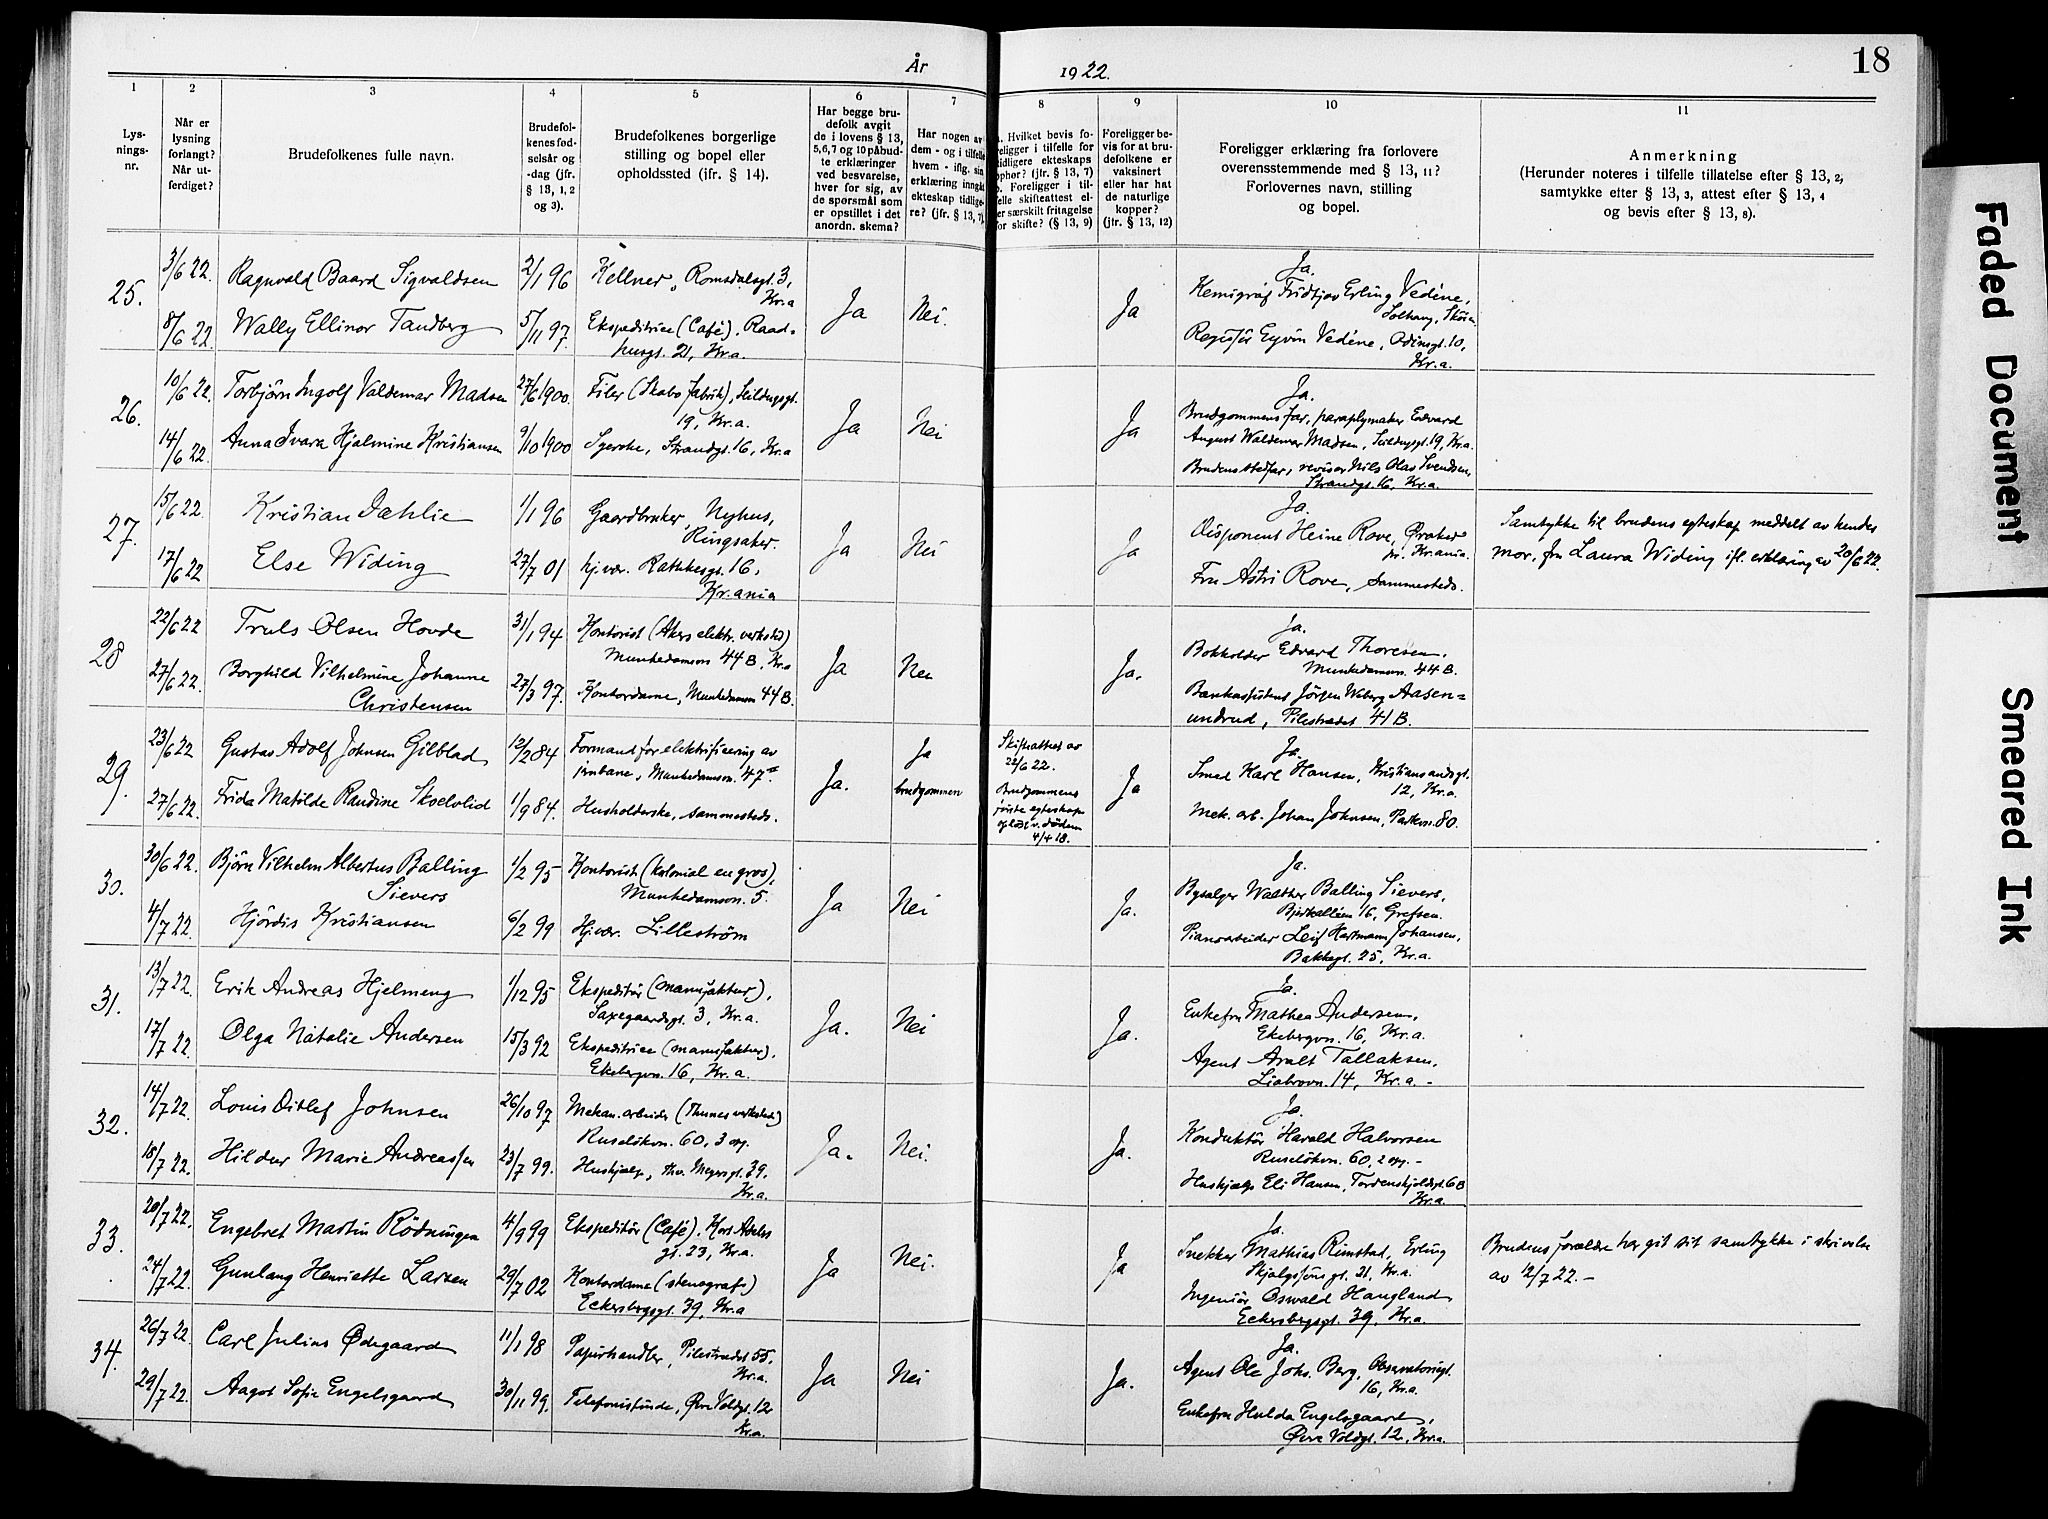 År 1922.
18
1 2 3 4 5 6 7 8 9 10 11
Lysnings-nr.
Når er lysning forlangt? Når utferdiget?
Brudefolkenes fulle navn.
Brudefolkenes fødselsår og -dag (jfr. § 13, 1, 2 og 3).
Brudefolkenes borgerlige stilling og bopel eller opholdssted (jfr. § 14).
Har begge brudefolk avgit de i lovens § 13, 5, 6, 7 og 10 påbudte erklæringer ved besvarelse, hver for sig, av de spørsmål som er opstillet i det anordn. skema?
Har nogen av dem - og i tilfelle hvem - iflg. sin erklæring inngått ekteskap tidligere? (jfr. § 13, 7).
Hvilket bevis foreligger i tilfelle for tidligere ekteskaps ophør? (jfr. § 13, 7) Foreligger i tilfelle skifteattest eller særskilt fritagelse for skifte? (§ 13, 9)
Foreligger bevis for at brudefolkene er vaksinert eller har hat de naturlige kopper? (jfr. § 13, 12)
Foreligger erklæring fra forlovere overensstemmende med § 13, 11? Forlovernes navn, stilling og bopel.
Anmerkning
(Herunder noteres i tilfelle tillatelse efter § 13, 2, samtykke efter § 13, 3, attest efter § 13, 4 og bevis efter § 13, 8).
25.
3/6 22. Ragnvald Baard Sigvaldsen 2/1 96 Kellner, Romsdalsgt. 3, Kr.a
8/6 22. Wally Ellinor Tandberg 5/11 97. Ekspeditrice (Café). Raadhusgt. 21, Kr.a.
Ja Nei. Ja
Ja.
Kemigraf Fridtjov Erling Vedéne, Solhaug,
Regissör Eyvin Vedéne, Odinsgt. 10, Kr.a.
26.
10/6 22. Torbjörn Ingolf Valdemar Madsen 27/6 1900. Filer (Skabo fabrik), Skildugsgt. 19, Kr.a.
14/6 22. Anna Ivara Hjalmine Kristiansen 9/10 1900 Syerske, Strandgt. 16, Kr.a
Ja Nei Ja
Ja.
Brudgommens far, paraplymaker Edvard
August Waldemar Madsen, 19, Kr.a.
Brudens stedfar, revisor Nils Olas Svendsen,
Strandgt. 16, Kr.a.
27.
15/6 22. Kristian Dahlie 1/1 96 Gaardbruker, Nyhus, Ringsaker.
17/6 22 Else Widing 27/7 01 hj.vær. Rathkesgt. 16, Kr.ania
Ja Nei Ja
Ja.
Disponent Heine Rove, pr. Kr.ania.
Fru Astri Rove, sammesteds.
Samtykke til brudens egteskap meddelt av hendes
mor, fru Laura Widing ifl. erklæring av 20/6 22.
28
22/6 22 Truls Olsen Hovde 31/1 94 Kontorist (Akers elektr. verksted) Munkedamsvn 44 B, Kr.a
27/6 22. Borghild Vilhelmine Johanne Christensen 27/3 97. Kontordame, Munkedamsvn 44 B.
Ja Nei Ja.
Ja.
Bokholder Edvard Thoresen, Munkedamsvn. 44 B.
Bankassistent Jörgen Woberg Aasen=
undrud, Pilestrædet 41 B.
29.
23/6 22 Gustav Adolf Johnsen Gilblad 12/2 84 Formand for elektrificering av jernbane, Munkedamsvn. 47 II
27/6 22. Frida Matilde Randine Skoelvlid 1/9 84. Husholderske, sammesteds.
Ja. Ja brudgommen
Skifteattest av 22/6 22.
Brudgommens første egteskap opløst v. döden 4/4 18.
Ja
Ja.
Smed Karl Hansen, Kristiansandsgt. 12, Kr.a.
Mek. arb. Johan Johnsen, Parkvn. 80.
30.
30/6 22. Björn Vilhelm Albertus Balling Sievers 1/2 95 Kontorist (kolonial en gros), Munkedamsvn. 5.
4/7 22. Hjördis Kristiansen 6/2 99 Hj.vær. Lilleström
Ja Nei Ja.
Ja.
Bysælger Walther Balling Sievers, Bjerkealléen 16, Grefsen.
Pianoarbeider Leif Hartmann Johansen,
Bakkegt. 25, Kr.a.
31.
13/7 22. Erik Andreas Hjelmeng 1/12 95 Ekspeditör (manufaktur), Saxegaardsgt. 3, Kr.a.
17/7 22. Olga Natalie Andersen 15/3 92 Ekspeditrice (manufaktur), Ekebergvn. 16, Kr.a.
Ja. Nei Ja.
Ja.
Enkefru Mathea Andersen, Ekebergvn. 16, Kr.a.
Agent Aralt Tallaksen, Liabrovn. 14, Kr.a. -
32.
14/7 22. Louis Ditlef Johnsen 26/10 97 Mekan. arbeider (Thunes verksted) Ruselökvn. 60, 3 opg.
18/7 22. Hildur Marie Andreassen 23/7 99. Hushjælp, Thv. Meyersgt. 39. Kr.a.
Ja. Nei. Ja.
Ja.
Konduktör Harald Halvorsen Ruselökvn. 60, 2 opg. -
Hushjælp Eli Hansen, Tordenskjoldsgt 6 B Kr.a.
33.
20/7 22. Engebret Martin Rödningen 4/9 99 Ekspeditör (Café). Kort Adelers gt. 23, Kr.a.
24/7 22. Gunlaug Henriette Larsen 29/7 02 Kontordame (stenograf) Eckersbergsgt. 39, Kr.a
Ja Nei. Ja
Ja.
Snekker Mathias Rimstad, Erling Skjalgssöns gt. 21, Kr.a.
Ingeniör Oswald Haugland Eckersbergsgt. 39, Kr.a.
Brudens forældre har git sit samtykke i skrivelse
av 12/7 22. -
34.
26/7 22. Carl Julius Ødegaard 11/1 98 Papirhandler, Pilestrædet 55. Kr.a.
29/7 22. Aagot Sofie Engelsgaard 30/11 99. Telefonistinde, Øvre Voldgt. 12 Kr.a.
Ja Nei Ja.
Ja.
Agent Ole Johs. Berg, Observatoriegt. 16, Kr.a.
Enkefru Hulda Engelsgaard, Øvre Voldgt. 12, Kr.a.
Faded Document
Smeared Ink